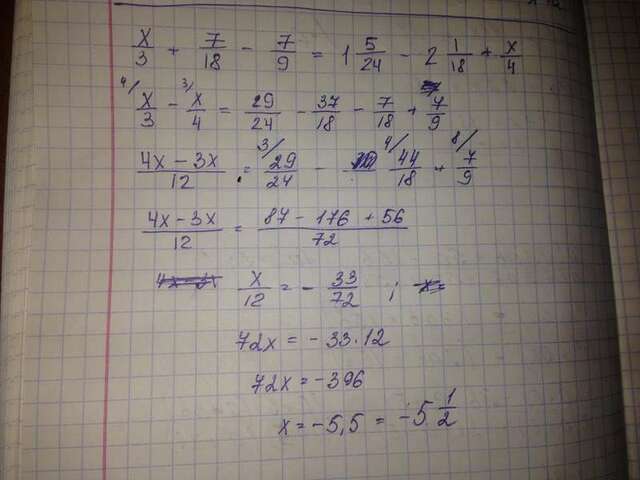 x/3 + 7/18 - 7/9 = 1 5/24 - 2 1/18 + x/4
4/ x/3 - 3/ x/4 = 29/24 - 37/18 - 7/18 + 7/9
(4x - 3x)/12 = 3/ 29/24 - 4/ 44/18 + 8/ 7/9
(4x - 3x)/12 = (87 - 176 + 56)/72
x/12 = - 33/72 ; x =
72x = -33 · 12
72x = -396
x = -5,5 = -5 1/2